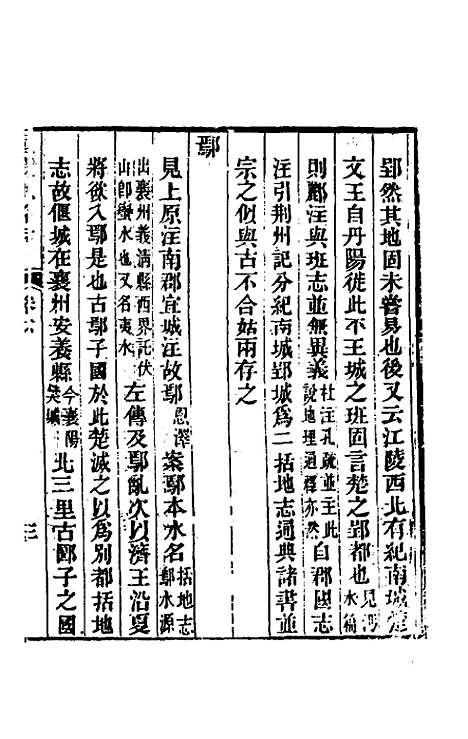 郢然其地固未嘗易也後又云江陵西北有紀南城楚
文王自丹陽徙此平王城之班固言楚之郢都也見沔水篇
則酈注與班志並無異義杜注孔疏並主此說地理通釋亦然自郡國志
注引荆州記分紀南城郢城爲二括地志通典諸書並
宗之似與古不合姑兩存之
鄢
見上原注南郡宜城注故鄢惠譯案鄢本水名括地志鄢水源
出襄州義清縣西界託伏山卽蠻水也又名夷水左傳及鄢亂次以濟王沿夏
將欲入鄢是也古鄢子國於此楚滅之以爲別都括地
志故偃城在襄州安養縣今襄陽樊城北三里古鄾子之國
三